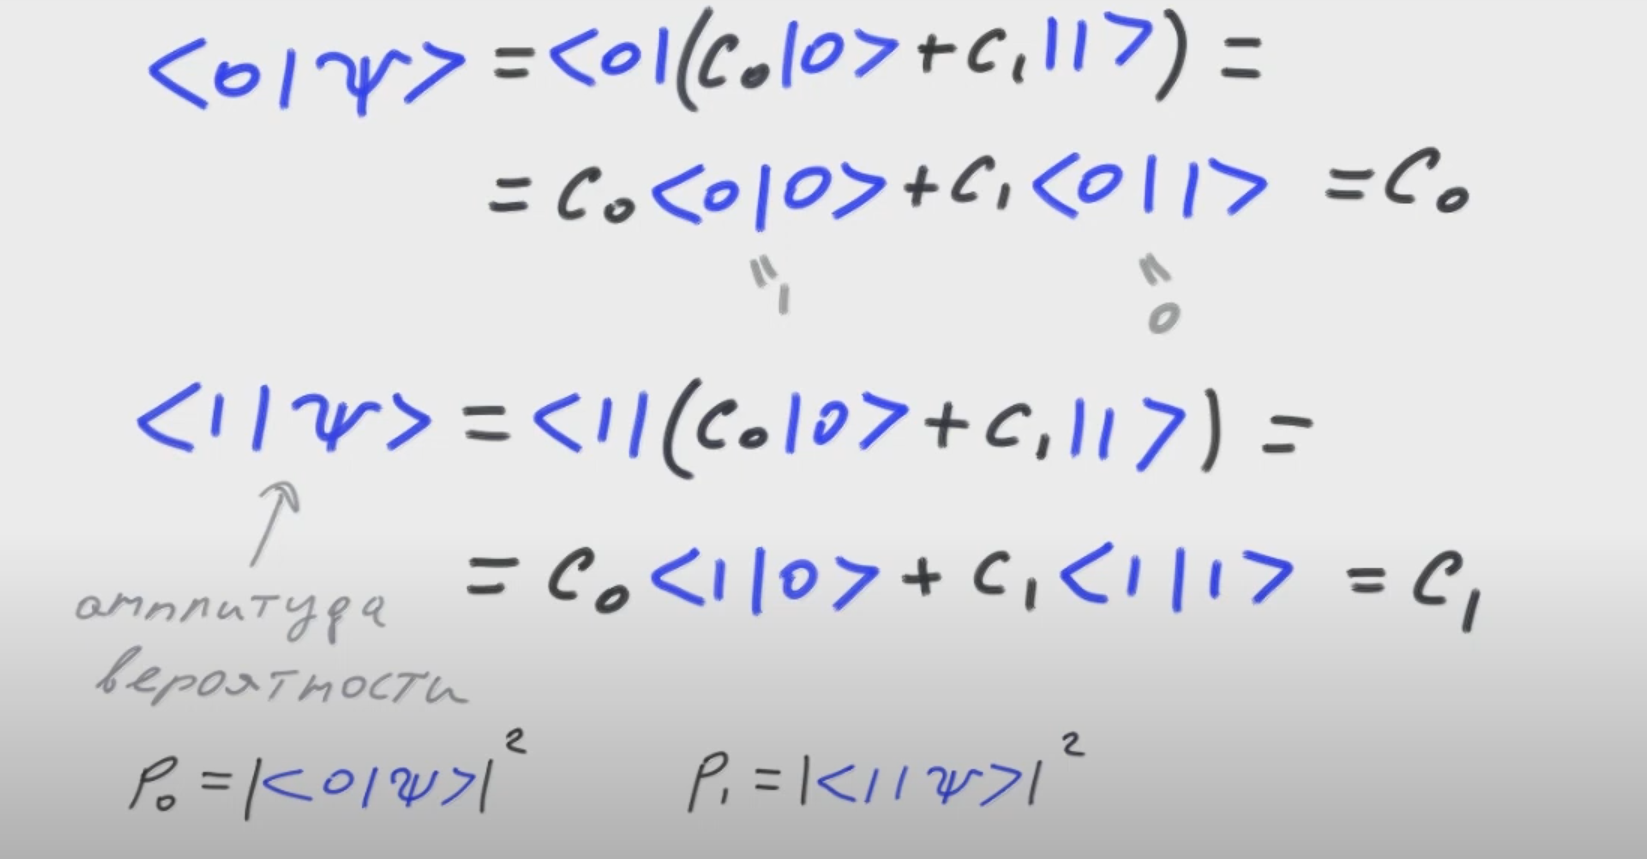 <0|ψ> = <0|(C₀|0> + C₁|1>) =
= C₀<0|0> + C₁<0|1> = C₀
"1 "0
<1|ψ> = <1|(C₀|0> + C₁|1>) =
= C₀<1|0> + C₁<1|1> = C₁
амплитуда
вероятности
P₀ = |<0|ψ>|² P₁ = |<1|ψ>|²